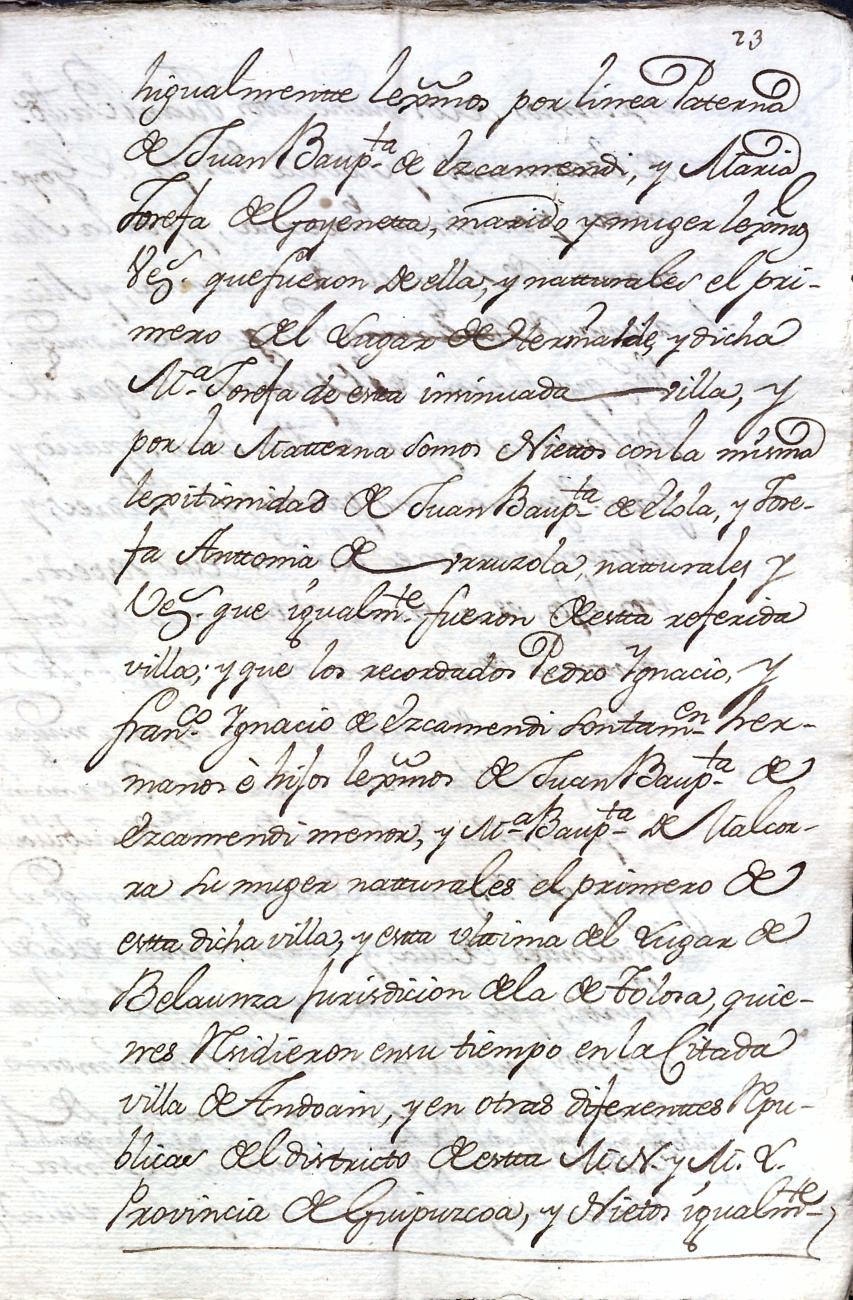 23
higualmente lexmos por linea Paterna
de Juan Baupta de Ezcamendi, y Maria
Josefa de Goyeneta, marido y muger lexmos
Vezs. que fueron de ella, y natturales el pri-
mero del Lugar de Hernialde, y dicha
Ma. Josefa de esta insinuada villa, y
por la Matterna somos Niettos con la misma
lexitimidad de Juan Baupta de Elola, y Jose-
fa Anttonia de Urruzola, natturales y
Vezs. que igualmte. fueron de estta referida
villa; y que los recordados Pedro Ygnacio, y
Franco. Ygnacio de Ezcamendi son tamen her-
manos è hijos lexmos de Juan Baupta de
Ezcamendi menor, y Ma Baupta de Nalcor-
ra su muger natturales el primero de
estta dicha villa, y estta ultima del Lugar de
Belaunza Jurisdicion de la de Tolosa, quie-
nes Residieron en su tiempo en la Citada
villa de Andoain, y en otras diferenttes Repu-
blicas del districto de estta M. N. y M. L.
Provincia de Guipuzcoa, y Nietos igualmte